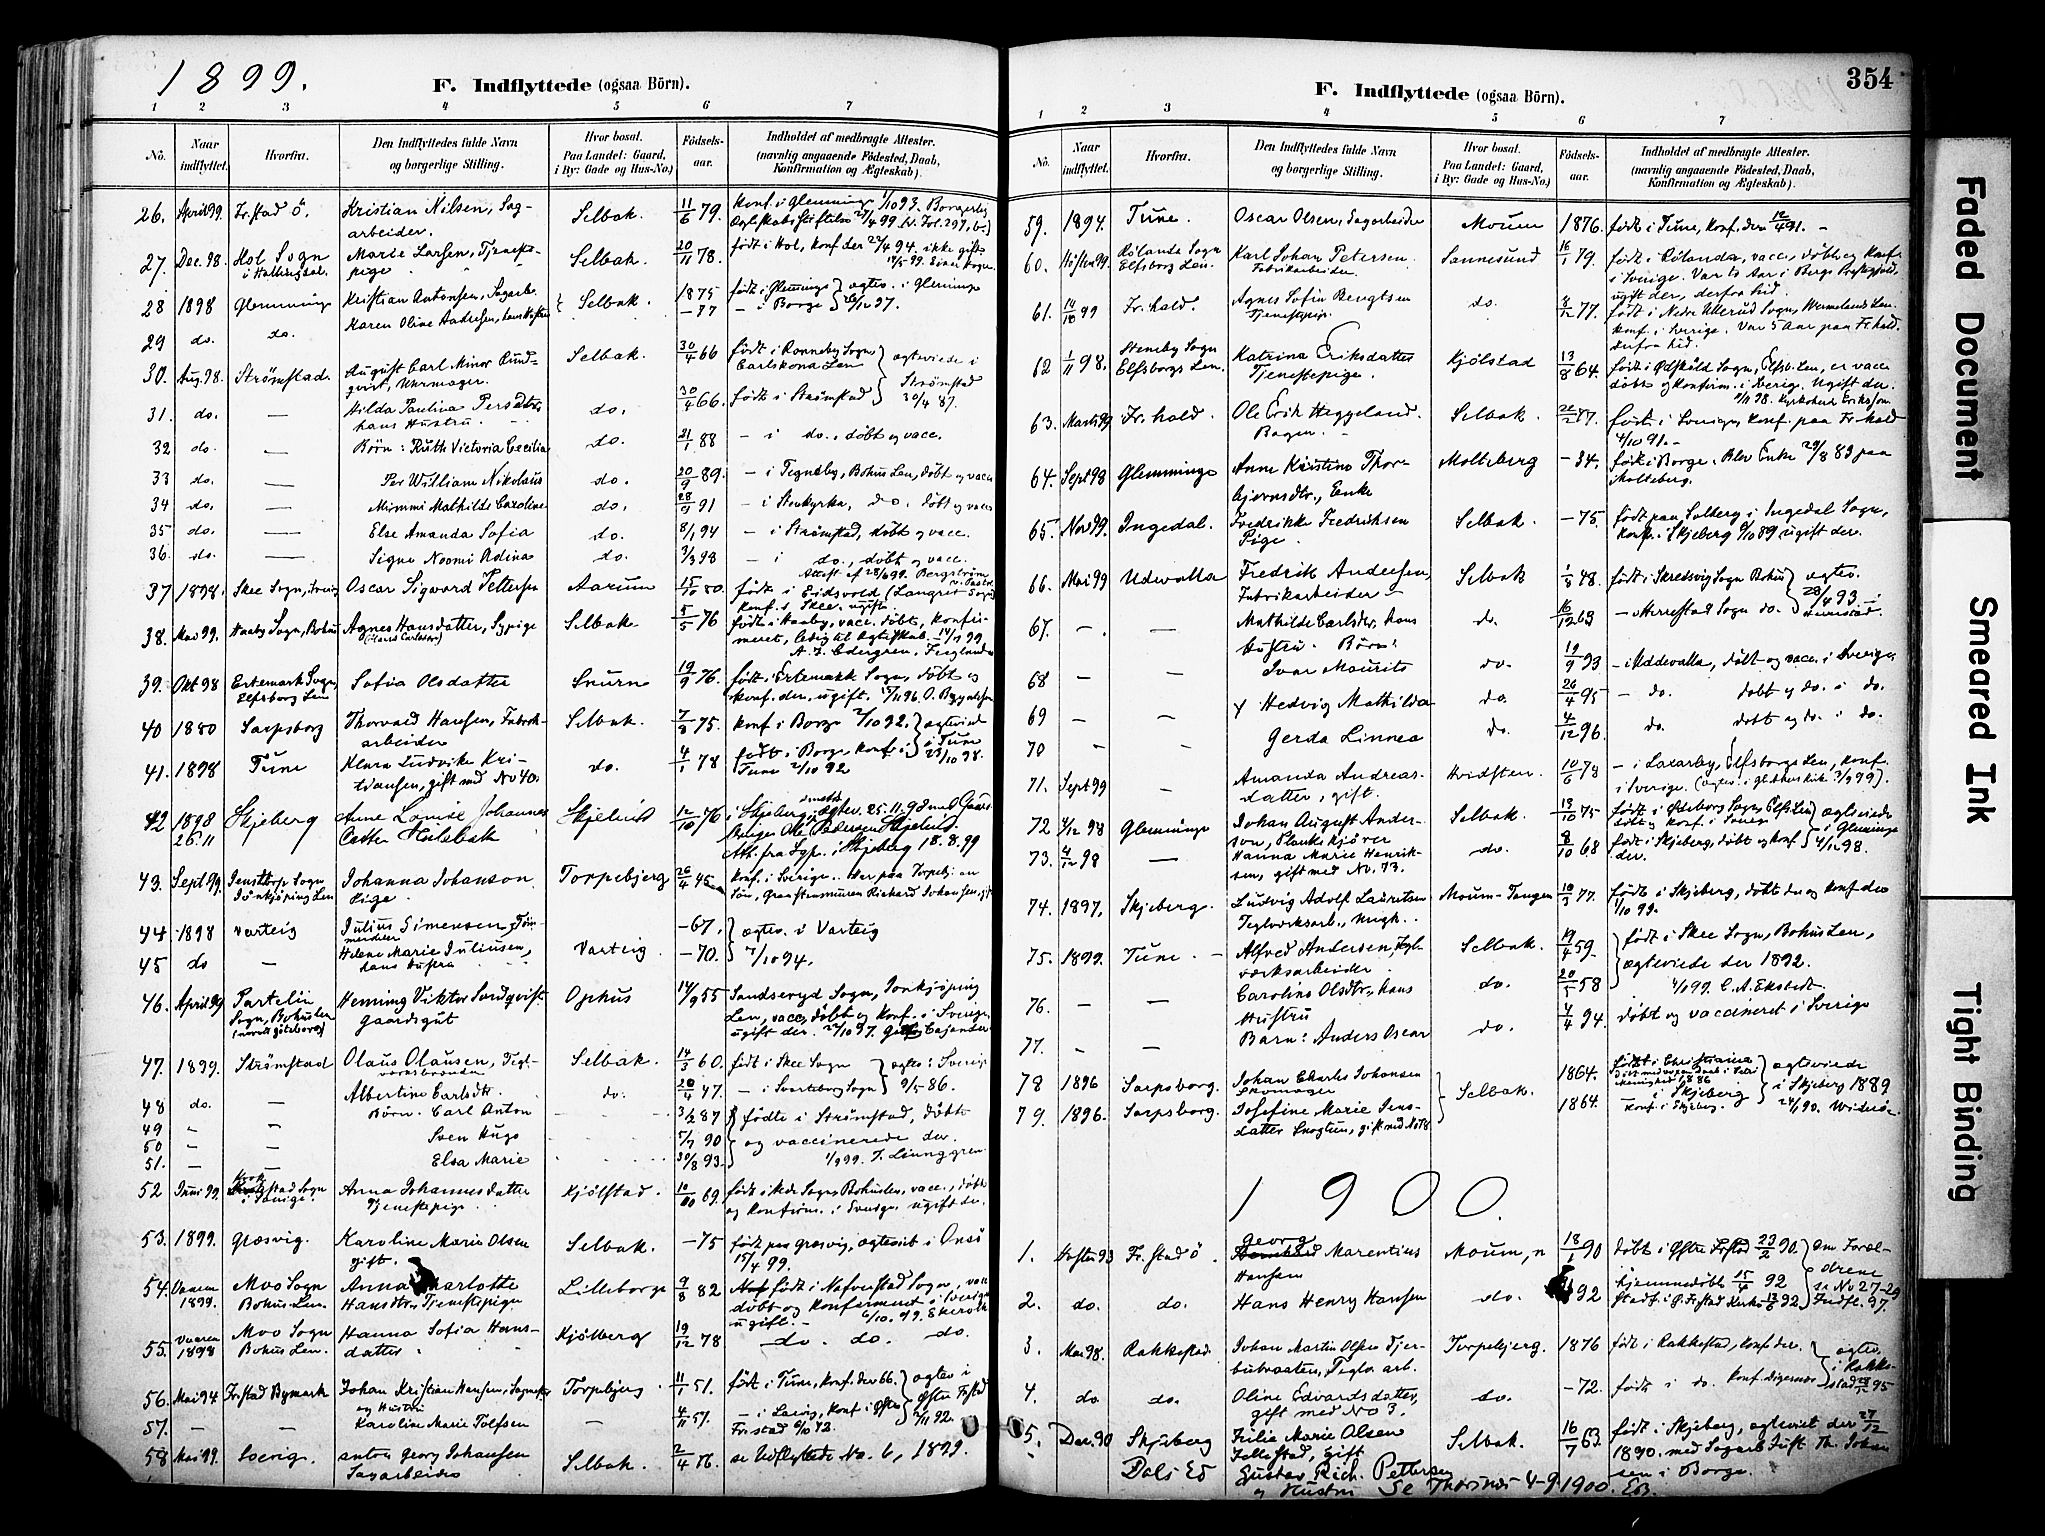 1899.
F. Indflyttede (ogsaa Börn).
1 2 3 4 5 6 7
No. Naar indflyttet. Hvorfra. Den Indflyttedes fulde Navn og borgerlige Stilling. Hvor bosat. Paa Landet: Gaard, i By: Gade og Hus-No.) Födsels-aar. Indholdet af medbragte Attester. (navnlig angaaende Födested, Daab, Konfirmation og Ægteskab).
26. April 99. Fr.stad Ö. Kristian Nilsen, Sag-
arbeider. Selbak. 11/6 79.
27. Dec. 98. Hol Sogn
i Hallingdal. Marie Larsen, Tjeneste-
pige Selbak. 20/11 78. født i Hol, konf. der 27/4 94. ikke gift
28 1898 Glemminge Kristian Antonsen, Sagarb. Selbak. 1875 født i Glemminge ægtev. i Glemminge
29 do. do. Karen Oline Andresen, hans Hustru - 77 - i Borge
30. Aug. 98. Strømstad. August Carl Minor Rund-
qvist, Urmager. Selbak. 30/4 66 født i Ronneby Sogn
Carlskrona Len ægteviede i
Strømstad
30/4 87.
31. do. — Hilda Paulina Persdtr.
hans Hustru. do. 30/4 66. født i Strømstad
32 do. — Børn: Ruth Victoria Cecilia do. 21/1 88 - i do., døbt og vacc.
33 do. — Per William Nikolaus do. 20/9 89. - i Tegneby, Bohus Len, døbt og vacc
34 do. — Mimmi Mathilde Caroline do. 28/9 91 - i Stenkyrka, do. døbt og vacc
35 do. — Else Amanda Sofia do. 8/1 94 - i Strømstad, døbt og vacc.
36. do. — Signe Noomi Rdina do. 7/3 98 - i do., døbt og vacc.
37 1898. Skee Sogn, Sverig Oscar Sigvard Pettersen Aarum 15/10 80. født i Eidsvold (Langset Sogn)
konf. i Skee. ugift.
38. Mai 99. Haaby Sogn, Bohus Agnes Hansdatter, Sypige Selbak 5/5 76 født i Haaby, vacc. døbt, konfir-
meret, ledig til Ægteskab. 14/1 99
39. Okt 98 Ertemark Sogn,
Elfsborg Len Sofia Olsdatter Snurn 19/9 76. født i Ertemark Sogn, døbt og
konf. der. ugift.
40 1880 Sarpsborg Thorvald Hansen, Fabrik-
arbeider Selbak. 7/8 75. konf i Borge 2/10 92. ægteviet
i Tune
23/10 98.
41. 1898 Tune Klara Ludvike Kri-
stiansen, gift med No 40. do. 4/1 78 født i Borge, konf. i
Tune 2/10 92
42 1898
26.11 Skjeberg Anne Lomise Johannes
Datter Hulebak Skjelin 12/10 76 i Skjeberg, ægtev. 25.11.98 med Gaard-
bruger Ole Pedersen Skjelin
Att. fra Sgp. i Skjeberg 18.8.99
43. Sept 99. Jenstorp Sogn
Jönkjöping Len Johanna Johanson
Pige. Torpebjerg 26/4 45 konf. i Sverige. Har paa Torpebj. en
Søn,
44 1898 Varteig Julius Simensen, Tøm-
mermand -67. ægtev. i Varteig
7/10 94.
45 do — Helene Marie Juliusen,
hans Hustru Varteig -70.
46. April 99 Partelin
Sogn, Bohuslen Henning Viktor Sandqvist.
Gaardsgut Ophus 14/9 55 Sandseryd Sogn, Jonkjöping
Len, vacc, døbt og konf. i Sverige
ugift der.
47. 1899. Strømstad Olaus Olausen, Tegl-
værksbrænder Selbak. 14/3 60. født i Skee Sogn ægtev i Sverige
9/5 86.
48 do. — Albertine Carlsdtr. do. 20/4 47. - i Svarteborg Sogn
49 - - Børn: Carl Anton 3/2 87 fødte i Strømstad, døbte
50 - - Sven Hugo 5/7 90 og vaccinerede der.
51. — — Elsa Marie 30/8 93.
52 Juni 99. stad Sogn
i Sverige. Anna Johannesdatter
Tjenestepige Kjølstad. 10/10 69. født i Sogn, Bohuslen, vacc., døbt
og konfirm. i Sverige. ugift der.
53. 1899. Græsvig. Karoline Marie Olsen
gift. Selbak. -75 født paa Græsvig, ægteviet i Onsö
15/4 99.
54. Vaaren
1899. Moo Sogn
Bohus Len. Anna Charlotte
Hansdtr, Tjenestepige Lilleborge 9/8 82 født i Naverstad Sogn, vacc
døbt og konfirmeret i Sverige
ugift. -
55. Vaaren
1898 Moo Sogn
Bohus Len. Hanna Sofia Hans-
datter Kjølberg 19/12 78 do. do. do.
56. Mai 94 Fr.stad Bymark Johan Kristian Hansen,
og Hustru Torpebjerg 11/1 51. født i Tune, konf. der 66. ægtev i
Østre Fr.stad
57. — — Karoline Marie Tolfsen — 4/11 57. - i Larvig, konf i Østre
Fr.stad 6/10 72.
58 Mai 99. Sverig. Anton Georg Johansen
Sagarbeider Selbak. 2/4 76. se Udflyttede No. 6, 1899.
354
F. Indflyttede (ogsaa Börn).
1 2 3 4 5 6 7
No. Naar indflyttet. Hvorfra. Den Indflyttedes fulde Navn og borgerlige Stilling. Hvor bosat. Paa Landet: Gaard, i By: Gade og Hus-No.) Födsels-aar. Indholdet af medbragte Attester. (navnlig angaaende Födested, Daab, Konfirmation og Ægteskab).
59. 1894. Tune. Oscar Olsen, Sagarbeider Moum 1876. født i Tune, konf. den 12/4 91. -
60. Høsten 99. Rölanda Sogn
Elfsborg Len. Karl Johan Petersen
Fabrikarbeider. Sannesund 16/1 79. født i Rölanda, vacc., døbt og konf.
i Sverige. Var ½ Aar i Berge Prestegjeld.
ugift der, derfra hid.
61. 14/10 99 Fr.hald. Agnes Sofia Bengtsen
Tjenestepige. do. 8/12 77. født i Nedre Ullerud Sogn, Wermelands Len.
konf. i Sverige. Var 5 Aar paa Fr.hald.
derfra hid.
62 1/11 98. Steneby Sogn
Elfsborgs Len. Katrina Eriksdatter
Tjenestepige. Kjølstad 13/8 64. født i Ødskölt Sogn, Elfsb. Len, er vacc
døbt og konfirm. i Sverig. Ugift der.
63. Marts 99 Fr. hald. Ole Erik Heggeland.
Bager. - Selbak. 22/2 77. født i Sverige, konf. paa Fr.hald
4/10 91. -
64. Sept 98 Glemminge Anne Kristine Thor-
bjørnsdtr., Enke Molteberg -34. født i Borge. Blev Enke 29/8 83 paa
Molteberg.
65. Nov 99. Ingedal. Fredrikke Fredriksen
Pige. Selbak. -75. født paa Solberg i Ingedal Sogn,
konf. i Skjeberg 9/10 89 ugift der.
66. Mai 99 Udevalla Fredrik Andersen,
Fabrikarbeider - Selbak 1/8 48. født i Skredsvig Sogn Bohus ægtev.
28/4 93 i
67. - — Mathilde Carlsdtr, hans
Hustru. Børn: do. 16/12 63 - Herrestad Sogn do.
68 - - Ivar Maurits do. 19/9 93 - i Uddevalla, døbt og vacc. i Sverige
69 - - Hedvig Mathilda do. 26/4 95 - do. døbt og do. i do.
70 - - Gerda Linnea do. 4/12 96. do. døbt og do. i do.
71. Sept 99 — Amanda Andreas-
datter, gift. Hvidsten. 10/6 78 - i Laxarby, Elfsborgs Len, konf.
i Sverige.
72 4/12 98 Glemminge Johan August Ander-
son, Plankekjører Selbak. 13/10 75 født i Ødeborg Sogn, Elfs Len ægteviede
i Glemminge
4/12 98.
73. 4/12 98 — Hanna Marie Henrik-
sen, gift med No. 73. do. 8/10 68 født i Skjeberg, døbt og konf
der.
74. 1897. Skjeberg. Ludvig Adolf Lauritsen
Teglværksarb., ungk. Moum-Tangen 10/3 77. født i Skjeberg, døbt der og konf. der
1/10 92.
75. 1899. Tune. - Alfred Andersen, Tegl-
værksarbeider Selbak. 19/4 59. født i Skee Sogn, Bohus Len,
ægteviede der 1892.
76. — — Caroline Olsdtr., hans
Hustru do. 20/5 58 C. A. Ekstedt
77. - — Barn: Anders Oscar do. 4/4 94. døbt og vaccineret i Sverige
78 1896 Sarpsborg. Johan Charles Johansen
Skomager Selbak. 1864. født i Christiania ægteviede
i Skjeberg 1889
79. 1896. Sarpsborg. Josefine Marie Jens-
datter Snogtun, gift med No 78 1864. i Skjeberg
konf. i Skjeberg.
1900.
1. Høsten 93 Fr.stad Ö. Georg
Marentius
Hansen Moum, n 18/1 90 døbt i Østre Fr.stad 23/2 90. Om Foræl-
drene
se No 27-29
Indfl. 97.
2. do. do. Hans Henry Hansen do. 92 hjemmedøbt 15/4 92
stadf. i Ø. Fr.stad Kirke 12/6 92.
3. Mai 98. Rakkestad. Johan Martin Olsen Tjer-
bubraaten, Tegla arb. Torpebjerg. 1876 født i Rakkestad, konf. der. ægtev.
i Rakke-
stad 95
4. do. do. Oline Edvardsdatter,
gift med No 3. do. -72. født i do. konf.
5. Dec. 90 Skjeberg Julie Marie Olsen
gift Selbak. 16/7 63 født i Skjeberg, ægteviet der 27/12
1890. med Sagarb. Just Th. Johan
sen i Borge.
Dals Ed Gustav Rich. Pettersen
og Hustru Se Thorsnes 4-9 1900.
Faded Document
Smeared Ink
Tight Binding